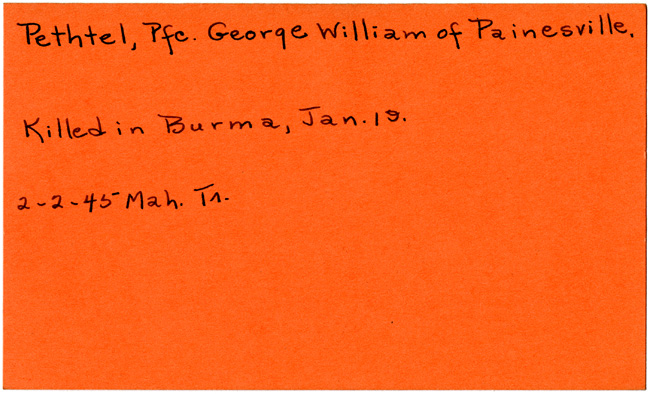 Pethtel, Pfc. George William of Painesville.
Killed in Burma, Jan. 19.
2-2-45 Mah. Tr.